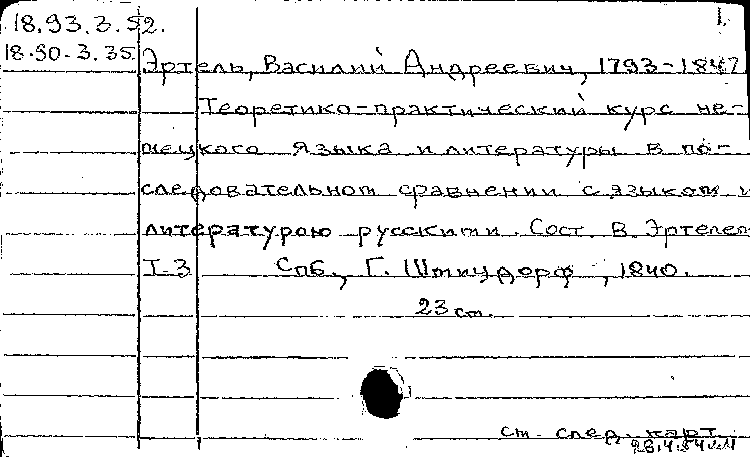 18.93.3.52.
1.
18.90.3.35.
Эртель, Василий Андреевич, 1793-1847
Теоретико-практический курс не-
мецкого языка и литературы в по-
следовательном сравнении с языком и
литературою русскими. Сост. В. Эртелем
Т-3 Спб., Г. Штицдорф, 1840.
23 см.
см. след. карт.